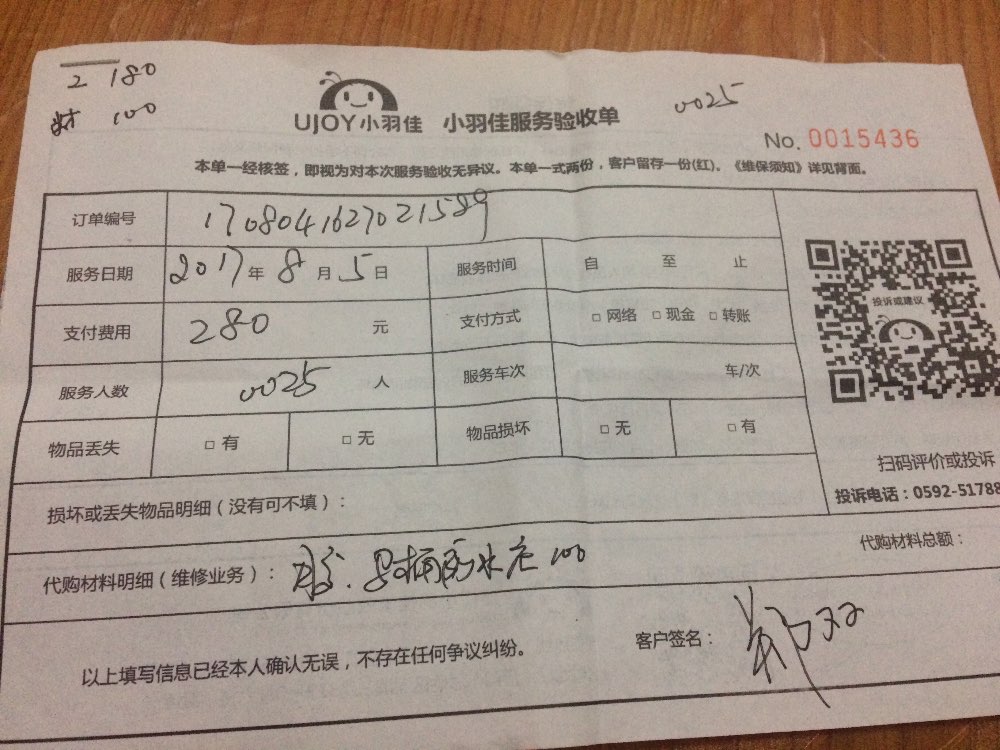 2 180
材 100
0025
UJOY小羽佳 小羽佳服务验收单
No. 0015436
本单一经核签，即视为对本次服务验收无异议。本单一式两份，客户留存一份(红)。《维保须知》详见背面。
订单编号 1708041627021589
服务日期 2017年 8月 5日 服务时间 自 至 止
投诉或建议
支付费用 280 元 支付方式 □ 网络 □ 现金 □ 转账
服务人数 0025 人 服务车次 车/次
物品丢失 □ 有 □ 无 物品损坏 □ 无 □ 有
扫码评价或投诉
投诉电话：0592-51788
损坏或丢失物品明细（没有可不填）：
代购材料总额：
代购材料明细（维修业务）： 100
客户签名：
以上填写信息已经本人确认无误，不存在任何争议纠纷。